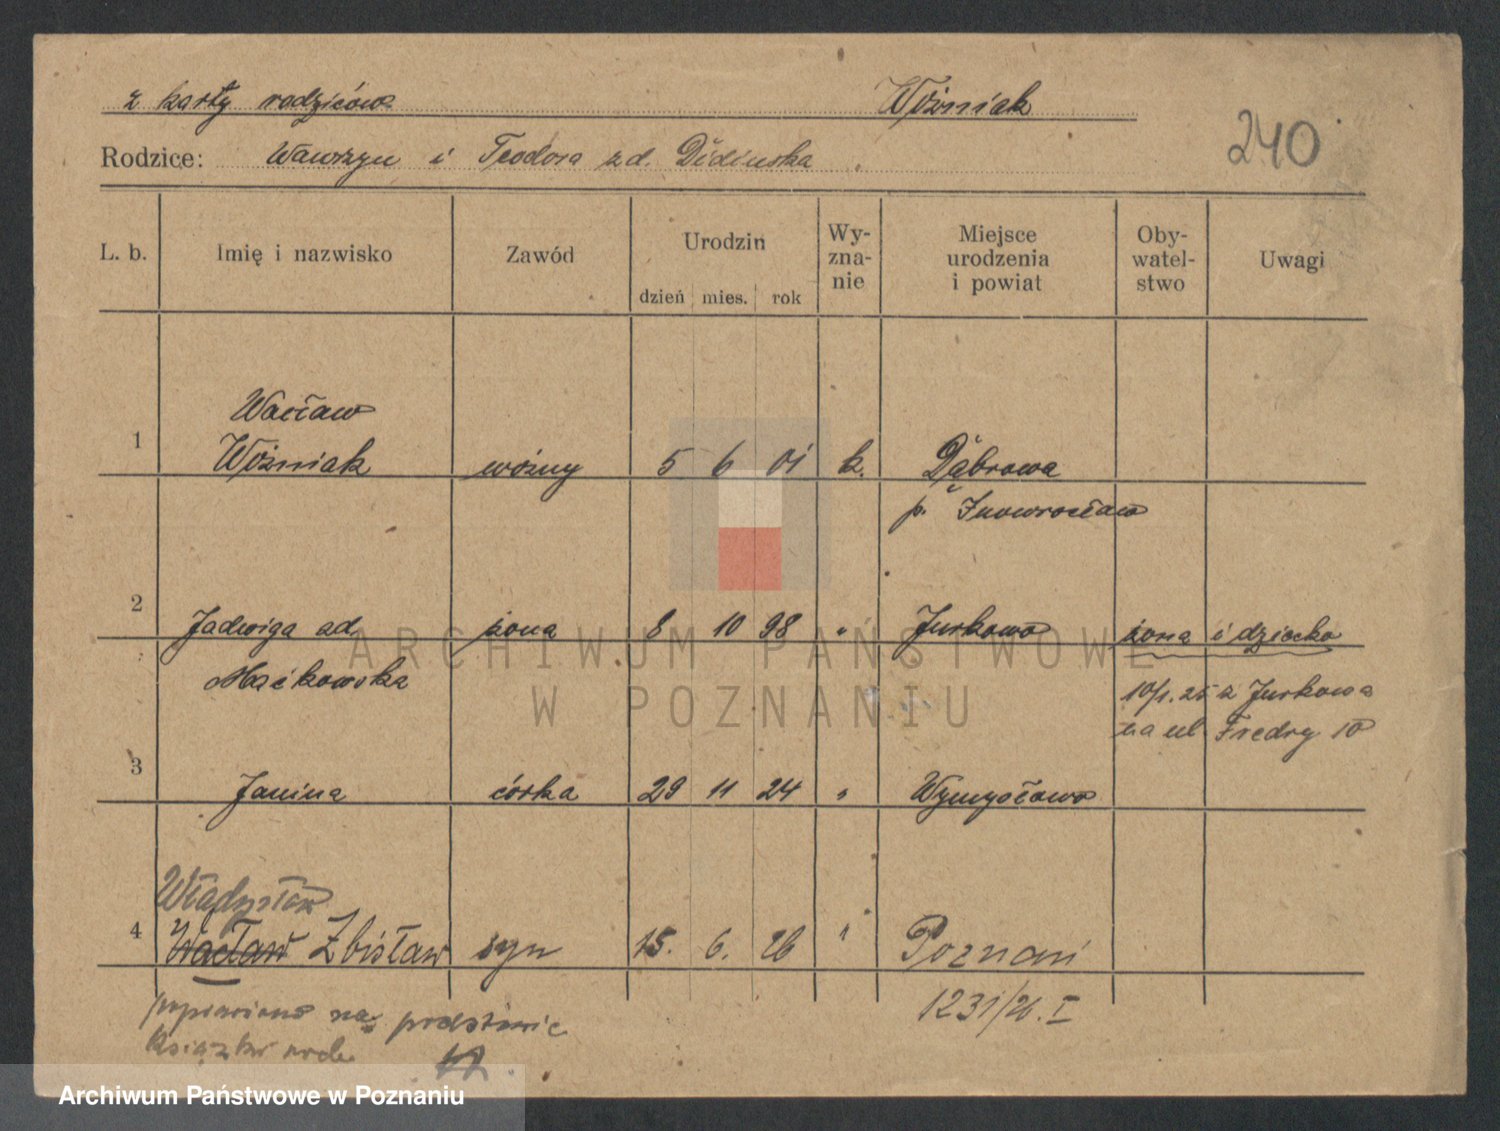 z karty rodziców Woźniak
240
Rodzice: Wawrzyn i Teodora zd.
L. b. Imię i nazwisko Zawód Urodzin Wy- Miejsce Oby- Uwagi
zna- urodzenia watel-
dzień mies. rok nie i powiat stwo
Wacław
1 Woźniak woźny 5 6 01 k. Dąbrowa
p. Inowrocław
2 Jadwiga zd. żona 8 10 98 " Jurkowo żona i dziecko
Maćkowska 10/1. 25 z Jurkowa
na ul. Fredry 10
3 Janina córka 29 11 24 " Wymysłowo
Władysław
4 Wacław Zbisław syn 15. 6. 26 " Poznań
poprawiono na podstawie 1231/26. I
książki
ARCHIWUM PAŃSTWOWE
W POZNANIU
Archiwum Państwowe w Poznaniu